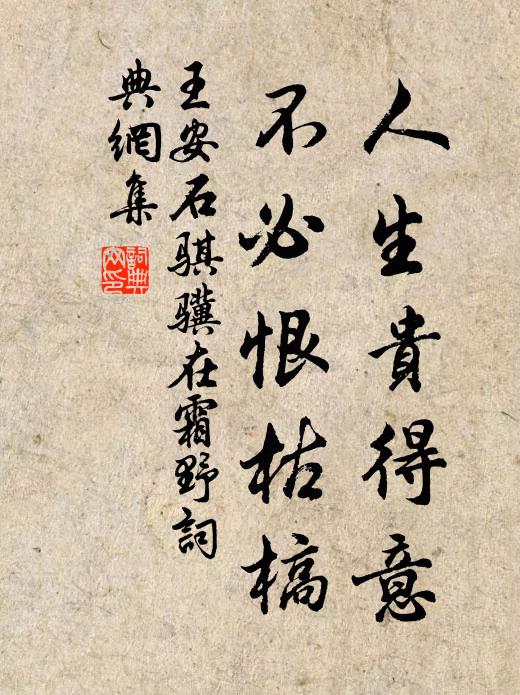 人生貴得意
不必恨枯槁
王安石骐驥在霜野詞
典網集
詞典
网印